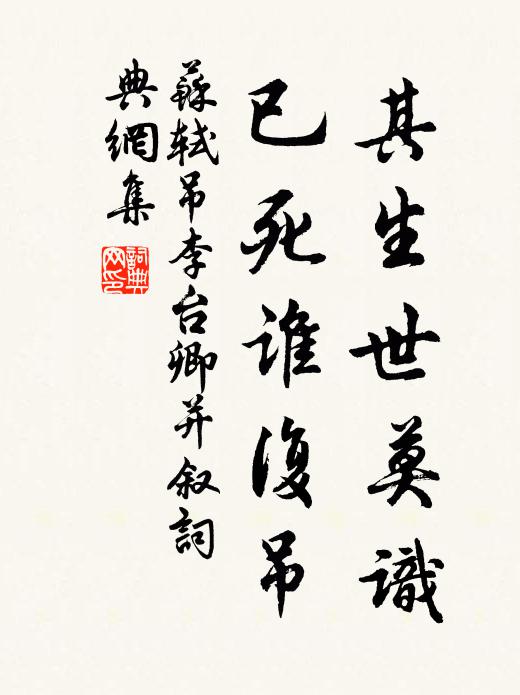 其生世莫識
已死誰復吊
蘇軾吊李台卿并叙詞
典網集
詞典網印